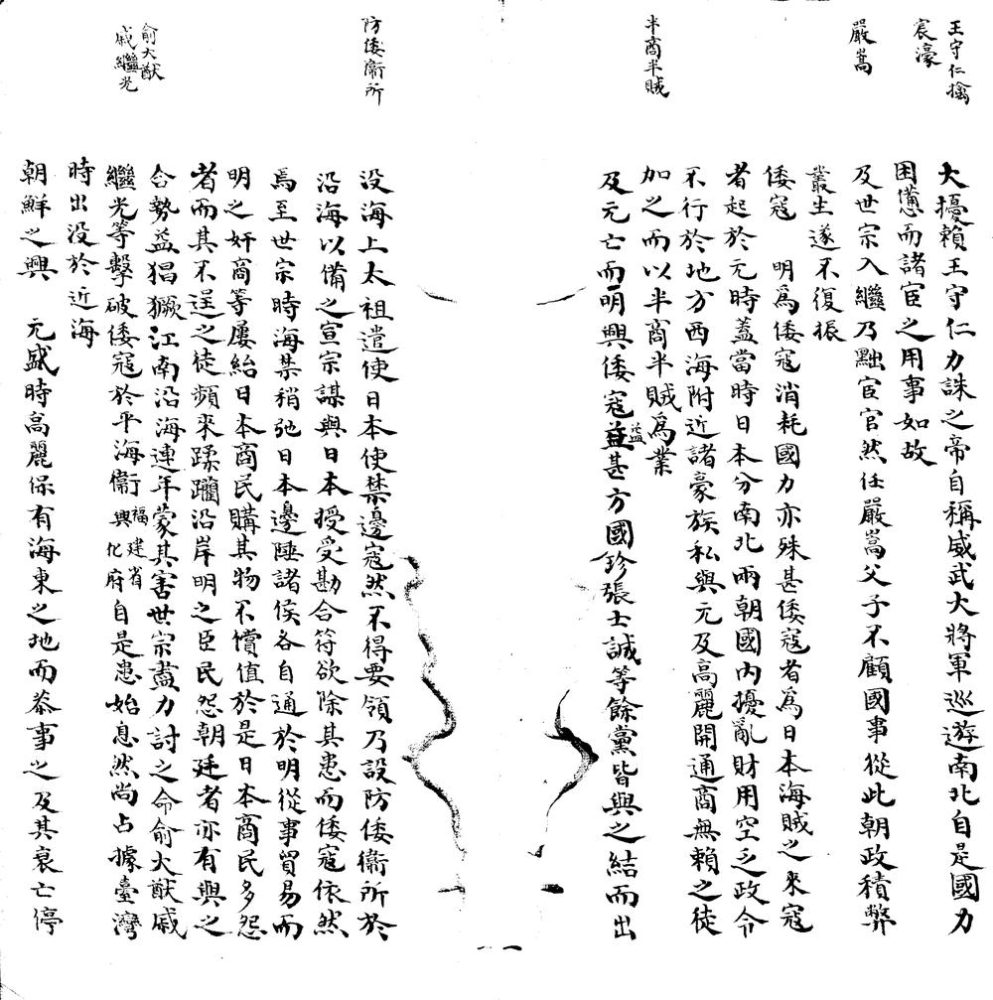 王守仁擒
宸濠
嚴嵩
半商半賊
大擾賴王守仁力誅之帝自稱威武大將軍巡遊南北自是國力
困憊而諸宦之用事如故
及世宗入繼乃黜宦官然任嚴嵩父子不顧國事從此朝政積弊
叢生遂不復振
倭寇　明爲倭寇消耗國力亦殊甚倭寇者爲日本海賊之來寇
者起於元時蓋當時日本分南北兩朝國內擾亂財用空乏政令
不行於地方西海附近諸豪族私與元及高麗開通商無賴之徒
加之而以半商半賊爲業
及元亡而明興倭寇益甚方國珍張士誠等餘黨皆與之結而出
防倭衞所
俞大猷
戚繼光
没海上太祖遣使日本使禁邊寇然不得要領乃設防倭衞所於
沿海以備之宣宗謀與日本授受勘合符欲除其患而倭寇依然
焉至世宗時海禁稍弛日本邊陲諸侯各自通於明從事貿易而
明之奸商等屢紿日本商民購其物不償值於是日本商民多怨
者而其不逞之徒頻來蹂躪沿岸明之臣民怨朝廷者亦有與之
合勢益猖獗江南沿海連年蒙其害世宗盡力討之命俞大猷戚
繼光等擊破倭寇於平海衞福建省興化府自是患始息然尚占據臺灣
時出没於近海
朝鮮之興　元盛時高麗保有海東之地而恭事之及其衰亡停